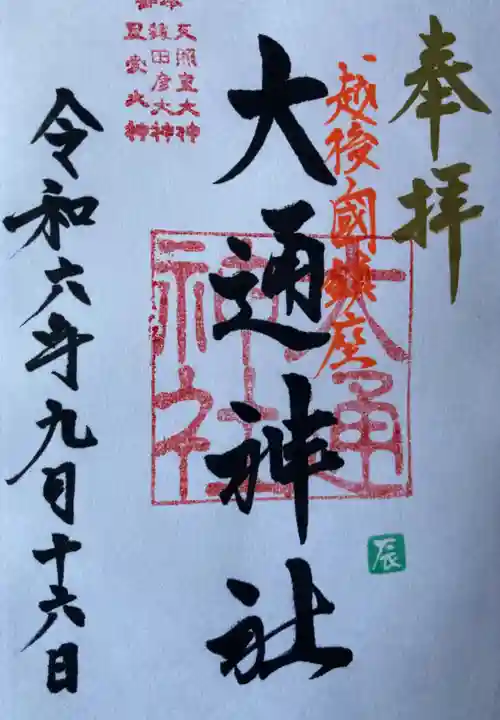 奉拝
越後國鎮座
大通神社
大通神社
天照皇大神
猿田彦大神
令和六年九月十六日
辰